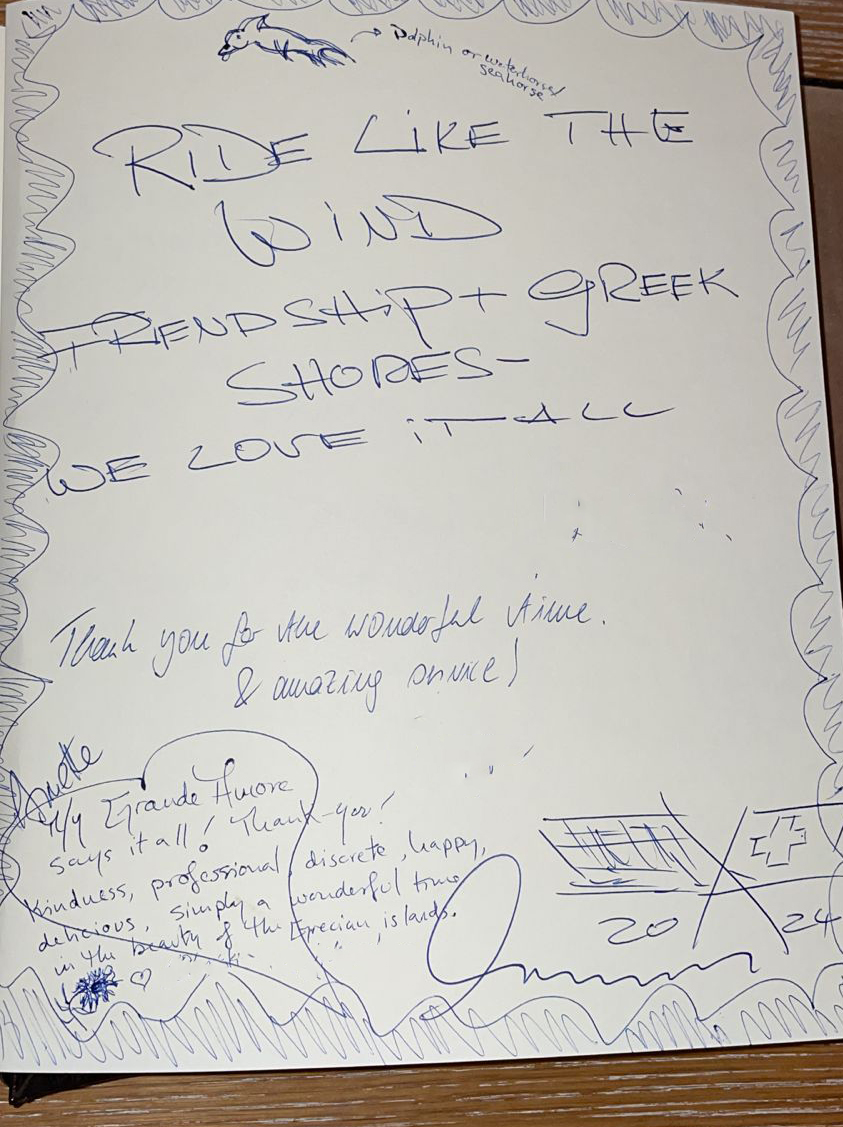 Dolphin or waterhorse/
seahorse
RIDE LIKE THE
WIND
FRIENDSHIP + GREEK
SHORES-
WE LOVE IT ALL
Thank you for the wonderful time.
& amazing service!
M/Y Grande Amore
says it all! Thank-you!
Kindness, professional, discrete, happy,
delicious, simply a wonderful time
in the beauty of the Grecian islands.
20 24